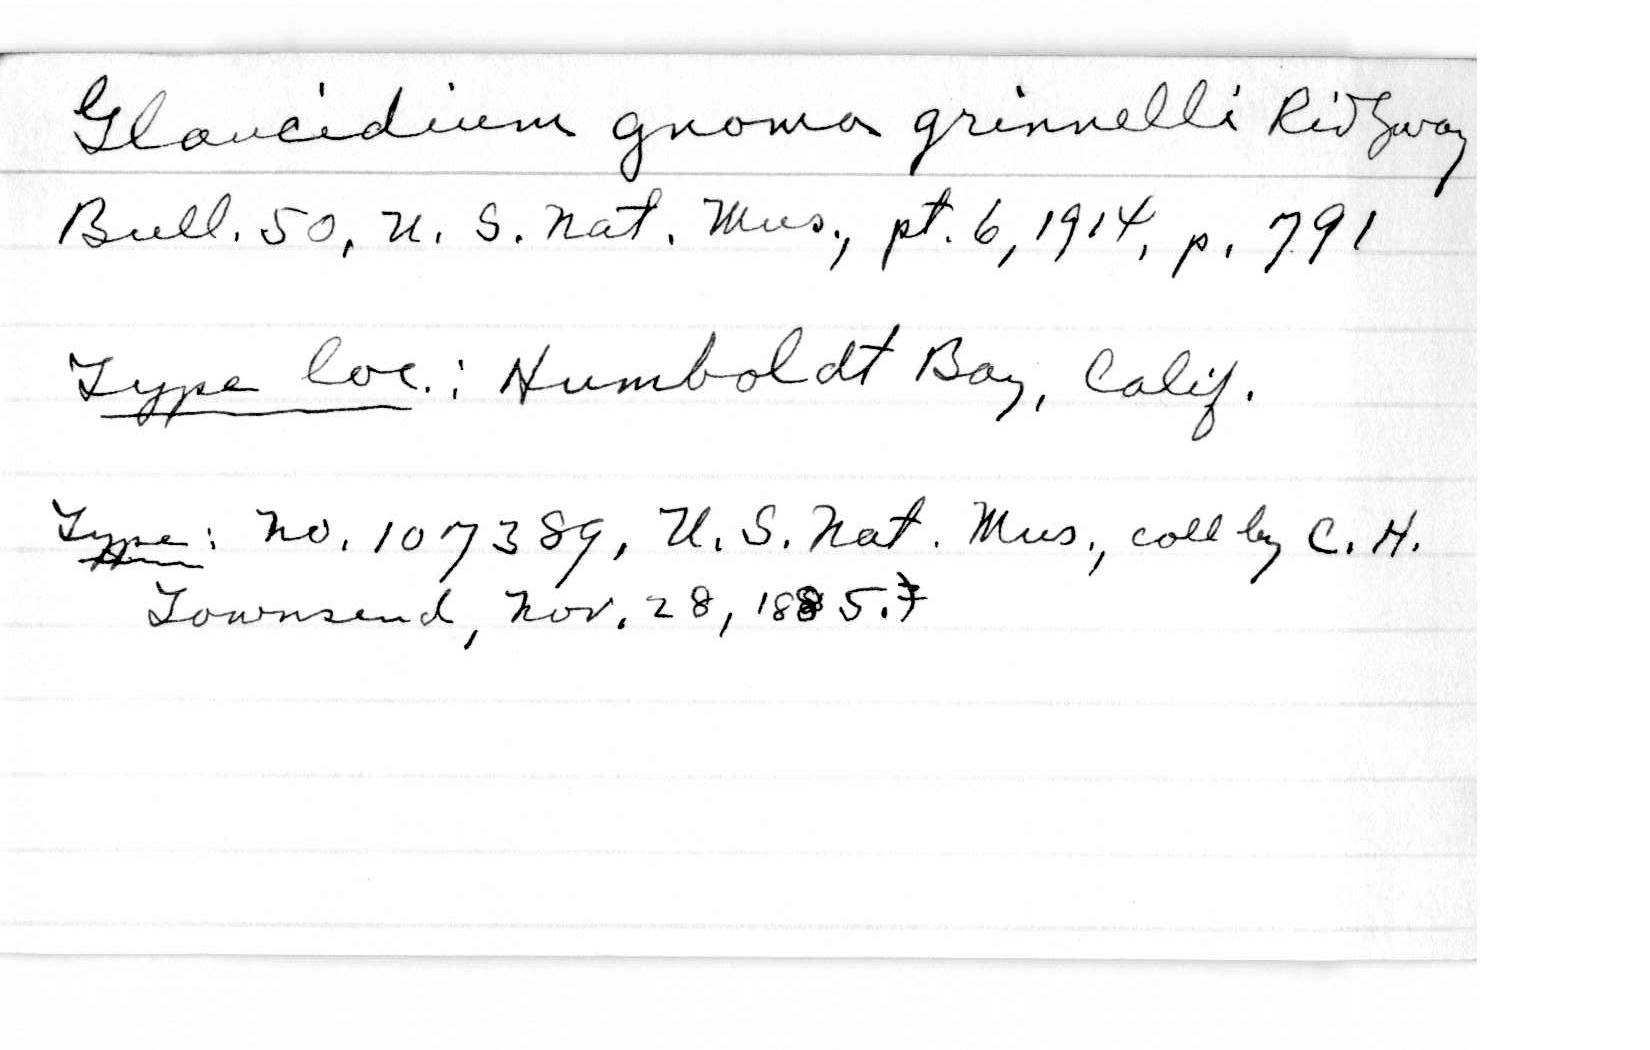 Glaucidium gnoma grinnelli Ridgway
Bull. 50, U. S. Nat. Mus., pt. 6, 1914, p. 791
Type loc.: Humboldt Bay, Calif.
Type: No. 107389, U. S. Nat. Mus., coll by C. H.
Townsend, Nov. 28, 1885.